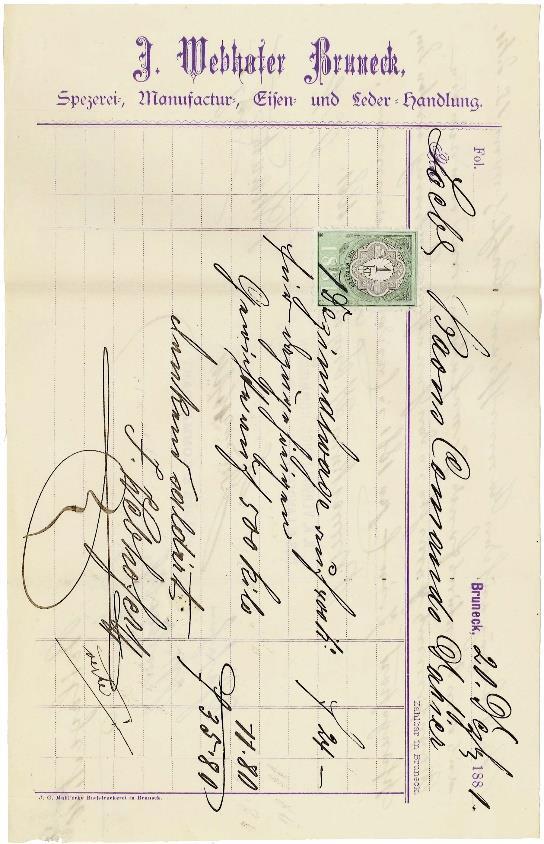 J. Webhofer Bruneck.
Spezerei-, Manufactur-, Eisen- und Leder-Handlung.
Fol.
Bruneck, 21. Dez 1881.
Löbl. Comando
Zahlbar in Bruneck.
1 Dezimalwage
f 24 –
Gewichte 500 Kilo
11.80
f 35.80
dankend saldirt
J. Webhofer
1 Kr
J. G. Mahl'sche Buchdruckerei in Bruneck.